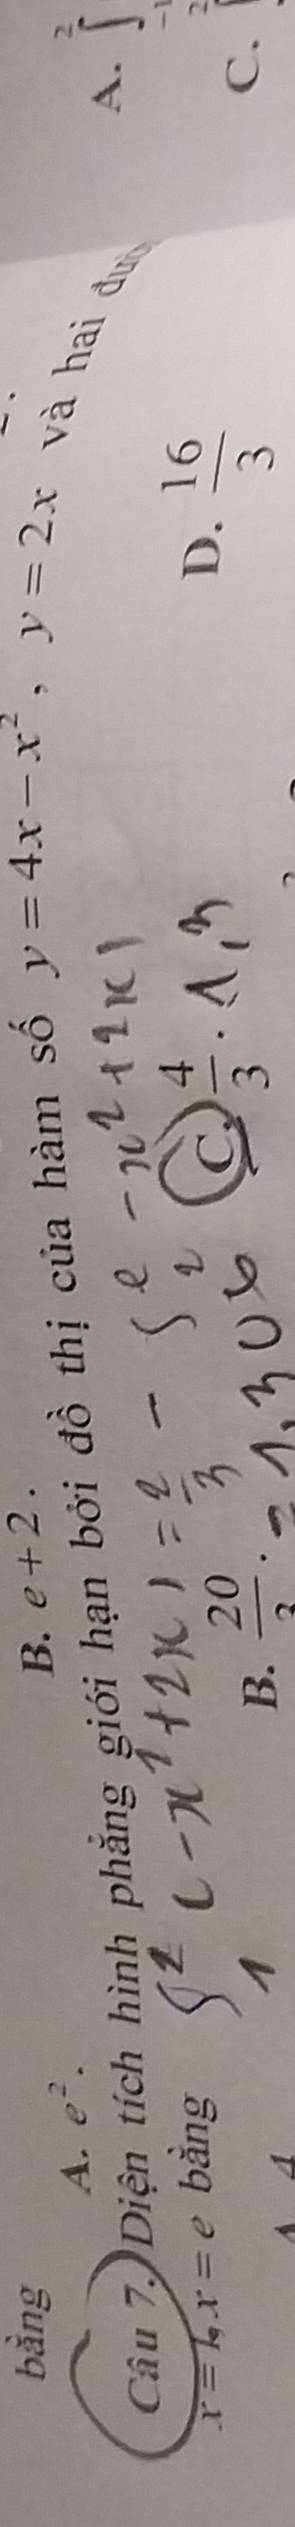 bằng
A. e². B. e + 2.
Câu 7. Diện tích hình phẳng giới hạn bởi đồ thị của hàm số y = 4x − x², y = 2x và hai
x = 1, x = e bằng
∫₁² (-x²+2x) = 2/3 - ∫₂ᵉ -x²+2x)
B. 20/3. C. 4/3. D. 16/3
= 1,30
1,3
A. ∫
C.